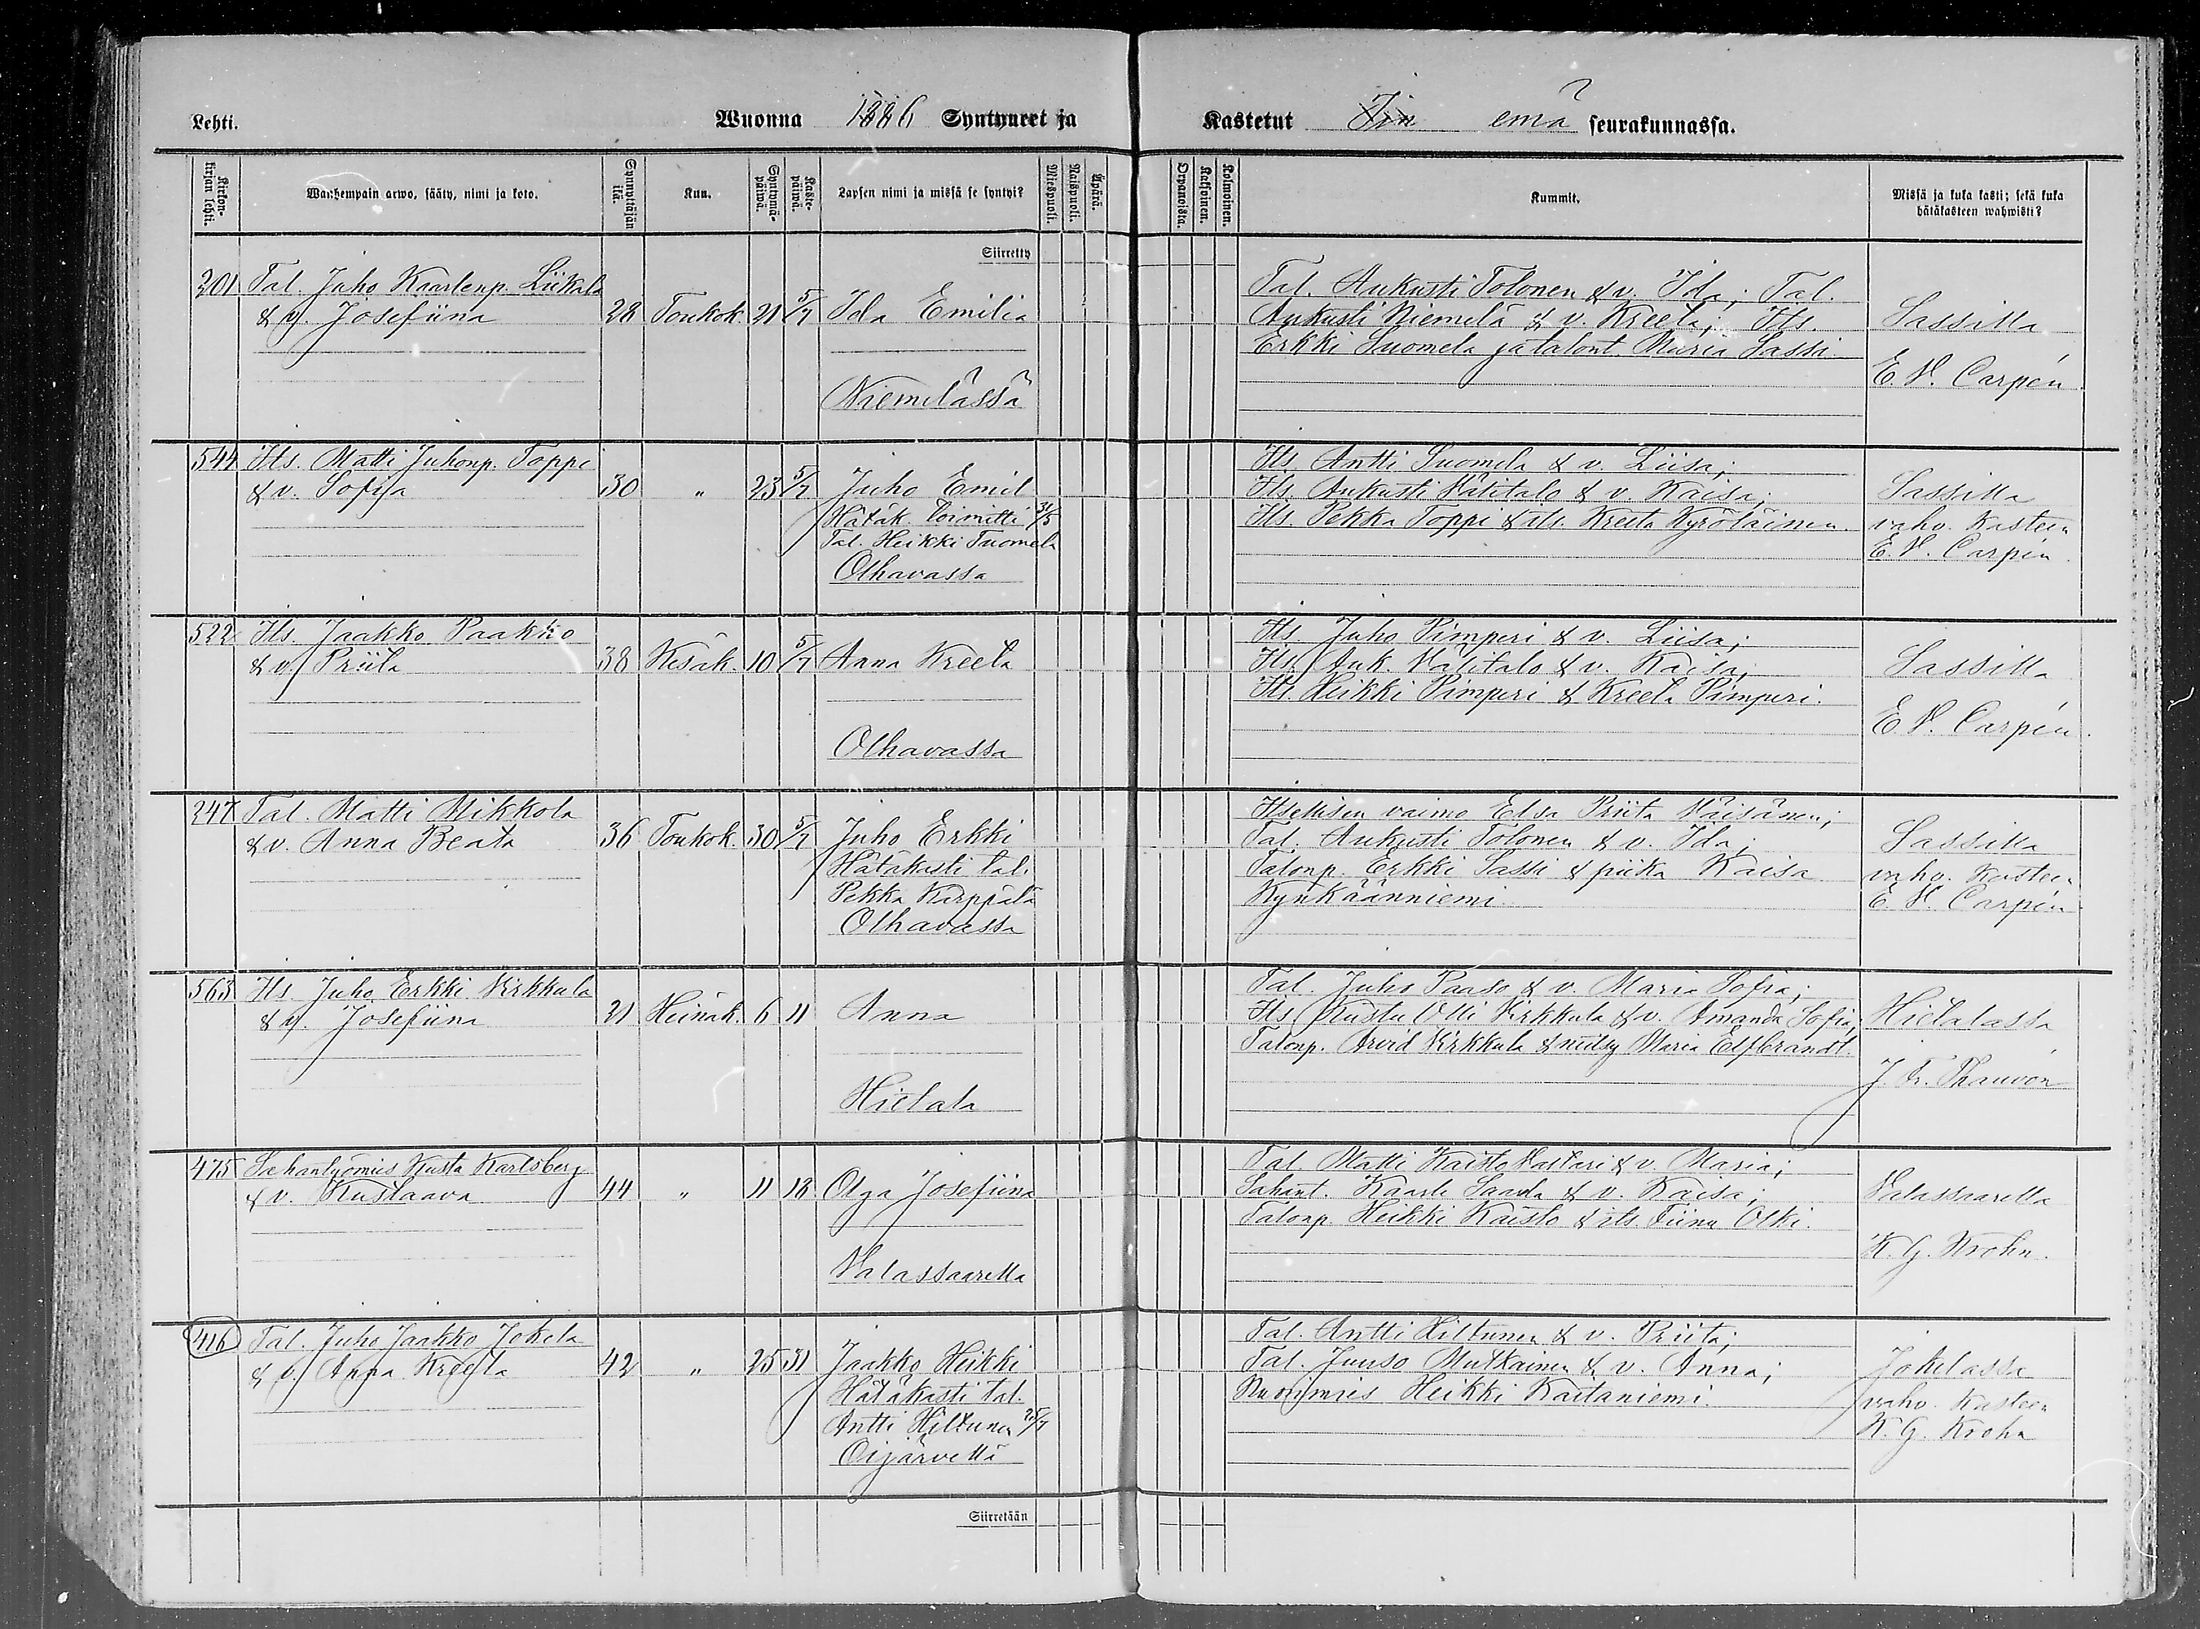 Lehti.
Wuonna 1886 Syntyneet ja
Kastetut Iin emä seurakunnassa.
Kirkonkirjan lehti.
Wanhempain arwo, sääty, nimi ja koto.
Synnyttäjän ikä.
Kuu.
Syntymäpäiwä.
Kastepäiwä.
Lapsen nimi ja missä se syntyi?
Miespuoli.
Naispuoli.
Äpärä.
Orpanoista.
Kaksoinen.
Kolmoinen.
Kummit.
Missä ja kuka kasti; sekä kuka hätäkasteen wahwisti?
Siirretty
201 Tal. Juho Kaarlenp. Liikala
& v. Josefiina 28 Toukok. 21 5/7 Ida Emilia
Niemelässä
Tal. Aukusti Tolonen & v. Ida; Tal.
Aukusti Niemelä & v. Kreeta; Its.
Erkki Suomela ja talont. Maria Sassi.
Sassilla
E. V. Carpén.
544 Its. Matti Juhonp. Toppi
& v. Sofija 30 " 23 5/7 Juho Emil
Hätäk. toimitti 31/5
Tal. Heikki Tuomela
Olhavassa
Its. Antti Suomela & v. Liisa;
Its. Aukusti Välitalo & v. Kaisa;
Its. Pekka Toppi & its. Kreeta Kyröläinen.
Sassilla
vahv. kasteen
E. V. Carpén.
522 Its. Jaakko Paakko
& v. Priita 38 Kesäk. 10 5/7 Anna Kreeta
Olhavassa
Its. Juho Pimperi & v. Liisa;
Its. Auk. Välitalo & v. Kaisa;
Its. Heikki Pimperi & Kreeta Pimperi.
Sassilla
E. V. Carpén.
247 Tal. Matti Mikkola
& v. Anna Beata 36 Toukok. 30 5/7 Juho Erkki
Hätäkasti tal.
Pekka Karppala
Olhavassa
Itsellisen vaimo Elsa Priita Väisänen;
Tal. Aukusti Tolonen & v. Ida;
Talonp. Erkki Sassi & piika Kaisa
Kynkäänniemi.
Sassilla
vahv. kasteen
E. V. Carpén.
563 Its. Juho Erkki Kirkkala
& v. Josefiina 21 Heinäk. 6 11 Anna
Hietala
Tal. Juho Paaso & v. Maria Sofia;
Its. Kustu Olli Kirkkala & v. Amanda Sofia;
Talonp. Arvid Kirkkala & neitsy Maria Elfbrandt.
Hietalassa
J. Fr. Thauvón
475 Sahantyömies Kusta Karlsberg
& v. Kustaava 44 " 11 18 Olga Josefiina
Valassaarella
Tal. Matti Kaisto Vastari & v. Maria;
Sahant. Kaarle Saarela & v. Kaisa;
Talonp. Heikki Kaisto & its. Tiina Olki.
Valassaarella
K. G. Krohn.
416 Tal. Juho Jaakko Jokela
& v. Anna Kreeta 42 " 25 31 Jaakko Heikki
Hätäkasti tal.
Antti Hiltunen 25/7
Oijärvellä
Tal. Antti Hiltunen & v. Priita;
Tal. Juuso Mutkainen & v. Anna;
Nuorimies Heikki Kaitaniemi.
Jokelassa
vahv. kasteen
K. G. Krohn
Siirretään